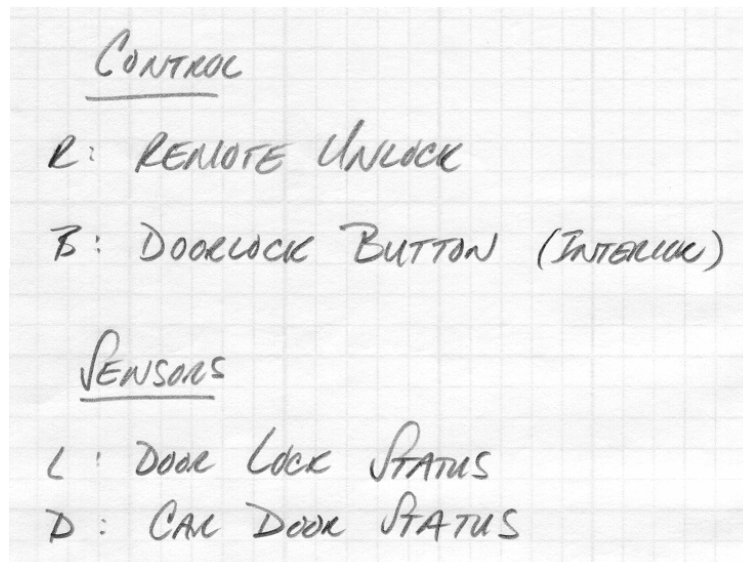 CONTROL
R: REMOTE UNLOCK
B: DOORLOCK BUTTON (INTERIOR)
SENSORS
L: DOOR LOCK STATUS
D: CAR DOOR STATUS